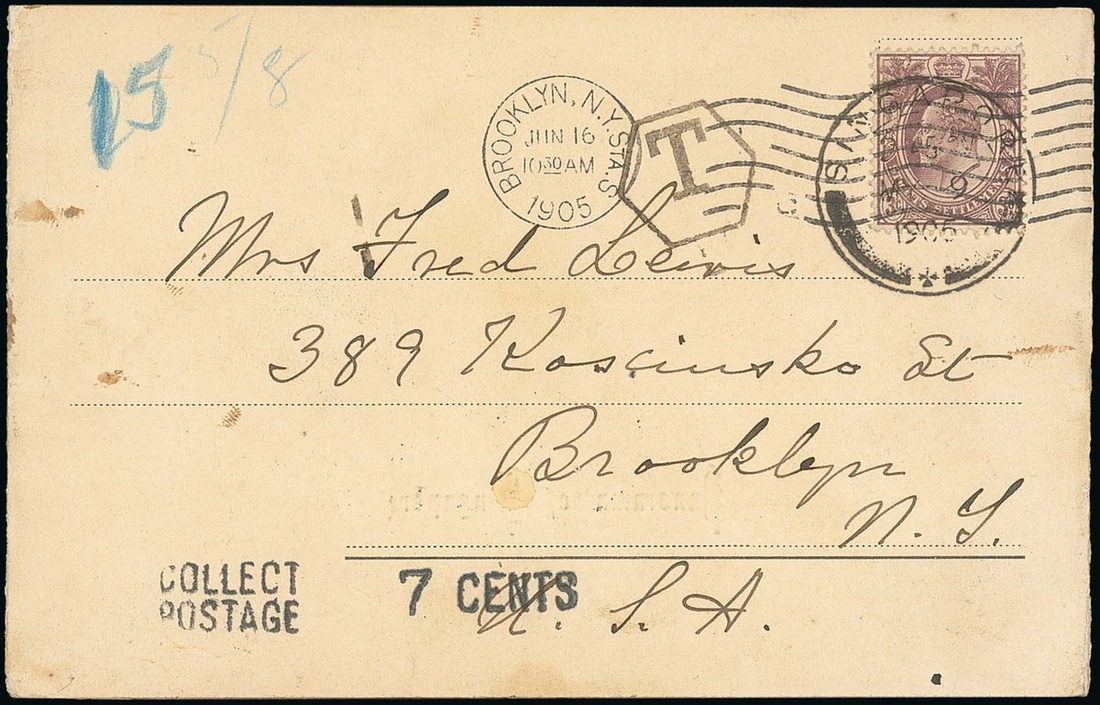 15 5/8
BROOKLYN, N.Y. STA. S
JUN 16
10 30 AM
1905
T
SINGAPORE
1905
Mrs Fred Lewis
389 Koscinsko St
Brooklyn
N. Y.
U. S. A.
COLLECT
POSTAGE
7 CENTS